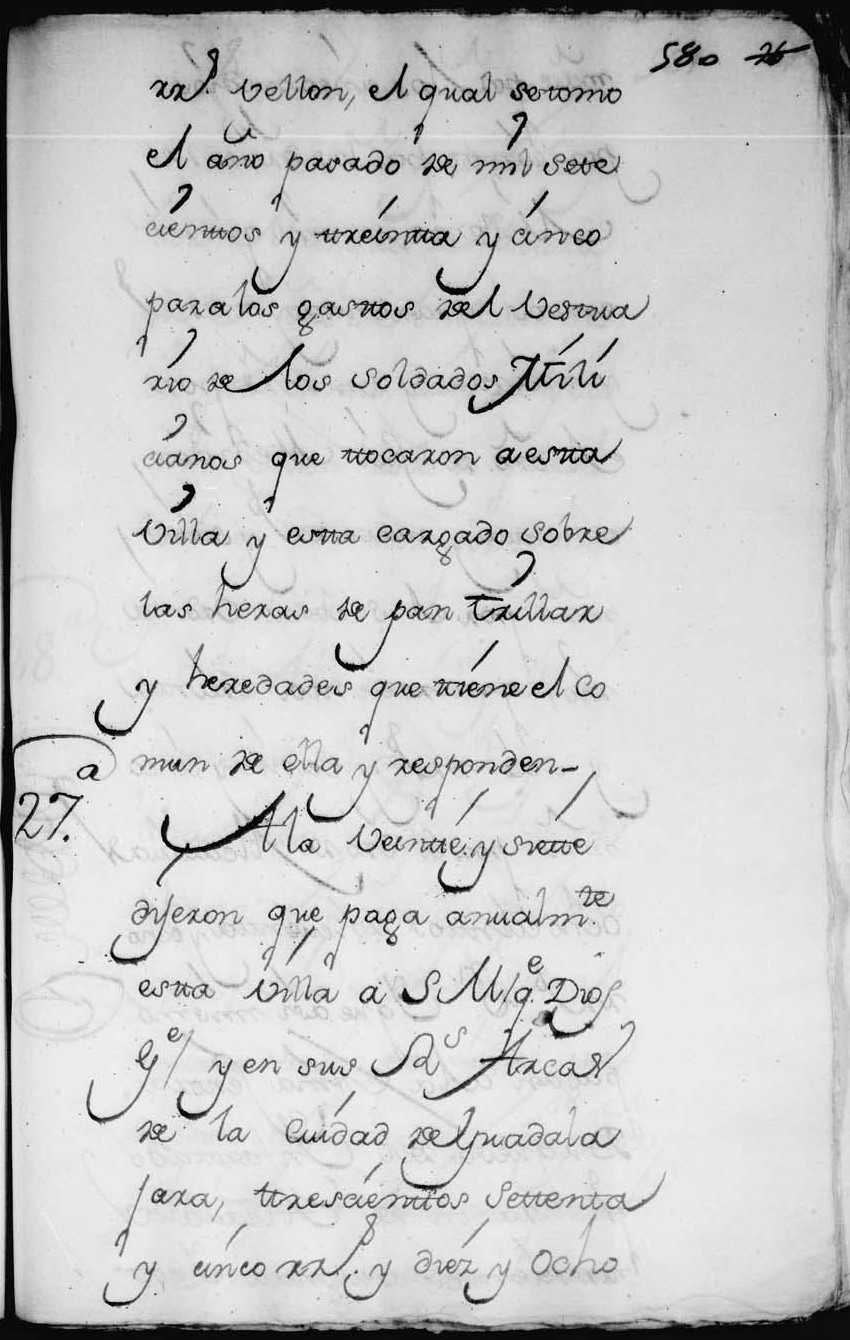 580 26
rr.s vellon, el qual setomo
el año pasado de mil sete
cienttos y ttreintta y cinco
para los gasttos del vestua
rio de los soldados Mili
cianos que ttocaron a estta
villa y estta cargado sobre
las heras de pan trillar
y heredades que ttiene el co
mun de ella y responden-
27.a
A la veintte y siette
dijeron que paga anualm.te
estta villa a S M/q.e Dios
G.e/ y en sus R.s Arcas
de la Ciudad de Guadala
jara, ttrescienttos settenta
y cinco rr.s y diez y ocho